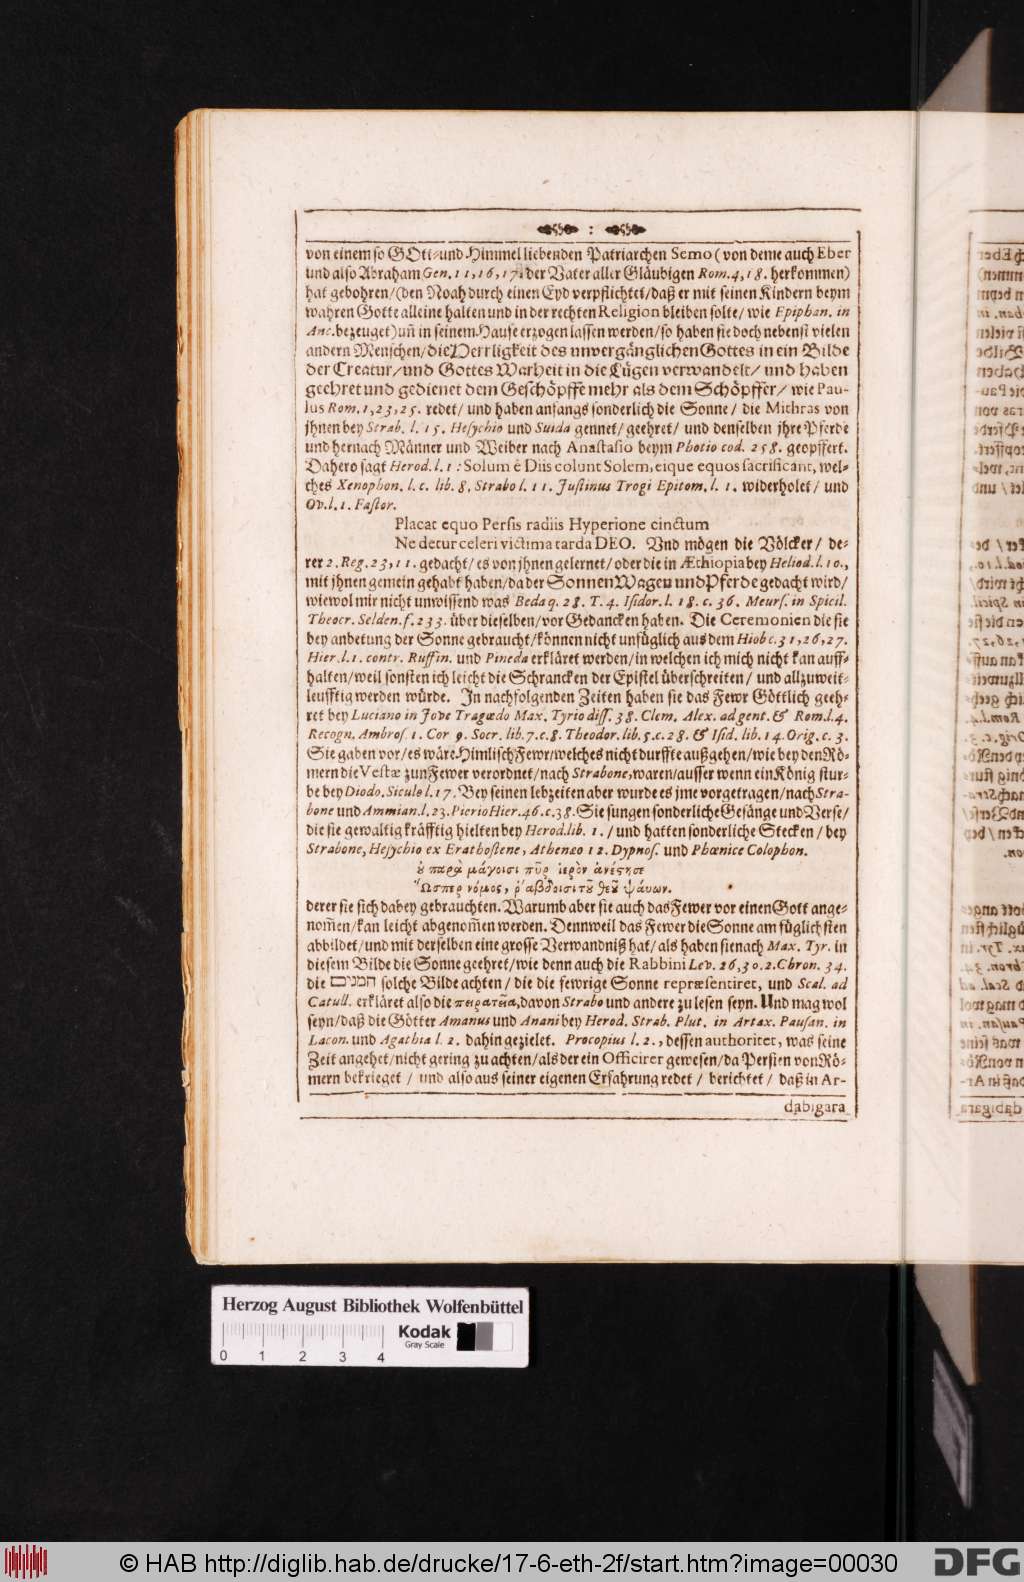 von einem so GOtt- und Himmel liebenden Patriarchen Semo (von deme auch Eber
und also Abraham Gen. 11, 16, 17. der Vater aller Gläubigen Rom. 4, 18. herkommen)
hat gebohren / (den Noah durch einen Eyd verpflichtet / daß er mit seinen Kindern beym
wahren Gotte alleine halten und in der rechten Religion bleiben solte / wie Epiphan. in
Anc. bezeuget) uñ in seinem Hause erzogen lassen werden / so haben sie doch nebenst vielen
andern Menschen / die Herrligkeit des unvergänglichen Gottes in ein Bilde
der Creatur / und Gottes Warheit in die Lügen verwandelt / und haben
geehret und gedienet dem Geschöpffe mehr als dem Schöpffer / wie Pau-
lus Rom. 1, 23, 25. redet / und haben anfangs sonderlich die Sonne / die Mithras von
jhnen bey Strab. l. 15. Hesychio und Suida gennet / geehret / und denselben jhre Pferde
und hernach Männer und Weiber nach Anastasio beym Photio cod. 258. geopffert.
Dahero sagt Herod. l. 1: Solum è Diis colunt Solem, eique equos sacrificant, wel-
ches Xenophon. l. c. lib. 8. Strabo l. 11. Justinus Trogi Epitom. l. 1. widerholet / und
Ov. l. 1. Fastor.
Placat equo Persis radiis Hyperione cinctum
Ne detur celeri victima tarda DEO. Und mögen die Völcker / de-
rer 2. Reg. 23, 11. gedacht / es von jhnen gelernet / oder die in Æthiopia bey Heliod. l. 10.,
mit jhnen gemein gehabt haben / da der Sonnen Wagen und Pferde gedacht wird /
wiewol mir nicht unwissend was Beda q. 28. T. 4. Isidor. l. 18. c. 36. Meurs. in Spicil.
Theocr. Selden. f. 233. über dieselben / vor Gedancken haben. Die Ceremonien die sie
bey anbetung der Sonne gebraucht / können nicht unfüglich aus dem Hiob c. 31, 26, 27.
Hier. l. 1. contr. Ruffin. und Pineda erkläret werden / in welchen ich mich nicht kan auff-
halten / weil sonsten ich leicht die Schrancken der Epistel überschreiten / und allzuweit-
leufftig werden würde. In nachfolgenden Zeiten haben sie das Fewr Göttlich geeh-
ret bey Luciano in Jove Tragœdo Max. Tyrio diss. 38. Clem. Alex. ad gent. & Rom. l. 4.
Recogn. Ambros. 1. Cor 9. Socr. lib. 7. c. 8. Theodor. lib. 5. c. 28. & Isid. lib. 14. Orig. c. 3.
Sie gaben vor / es wäre Himlisch Fewr / welches nicht durffte außgehen / wie bey den Rö-
mern die Vestæ zun Fewer verordnet / nach Strabone, waren / ausser wenn ein König stur-
be bey Diodo. Siculo l. 17. Bey seinen lebzeiten aber wurde es jme vorgetragen / nach Stra-
bone und Ammian. l. 23. Pierio Hier. 46. c. 38. Sie sungen sonderliche Gesänge und Verse /
die sie gewaltig kräfftig hielten bey Herod. lib. 1. / und hatten sonderliche Stecken / bey
Strabone, Hesychio ex Erathostene, Athenæo 12. Dypnos. und Phœnice Colophon.
ὐ παρὰ μάγοισι πῦρ ἱερὸν ἀνέστησε
Ὥσπερ νόμος, ῥαβδοισι τοῦ θεοῦ ψάυων.
derer sie sich dabey gebrauchten. Warumb aber sie auch das Fewer vor einen Gott ange-
nom̃en / kan leicht abgenom̃en werden. Dennweil das Fewer die Sonne am füglichsten
abbildet / und mit derselben eine grosse Verwandniß hat / als haben sie nach Max. Tyr. in
diesem Bilde die Sonne geehret / wie denn auch die Rabbini Lev. 26, 30. 2. Chron. 34.
die חמנים solche Bilde achten / die die fewrige Sonne repræsentiret, und Scal. ad
Catull. erkläret also die πειρατεῖα, davon Strabo und andere zu lesen seyn. Und mag wol
seyn / daß die Götter Amanus und Anani bey Herod. Strab. Plut. in Artax. Pausan. in
Lacon. und Agathia l. 2. dahin gezielet. Procopius l. 2., dessen authoritet, was seine
Zeit angehet / nicht gering zu achten / als der ein Officirer gewesen / da Persien von Rö-
mern bekrieget / und also aus seiner eigenen Erfahrung redet / berichtet / daß in Ar-
dabigara
Herzog August Bibliothek Wolfenbüttel
Kodak
Gray Scale
0 1 2 3 4
© HAB http://diglib.hab.de/drucke/17-6-eth-2f/start.htm?image=00030
DFG